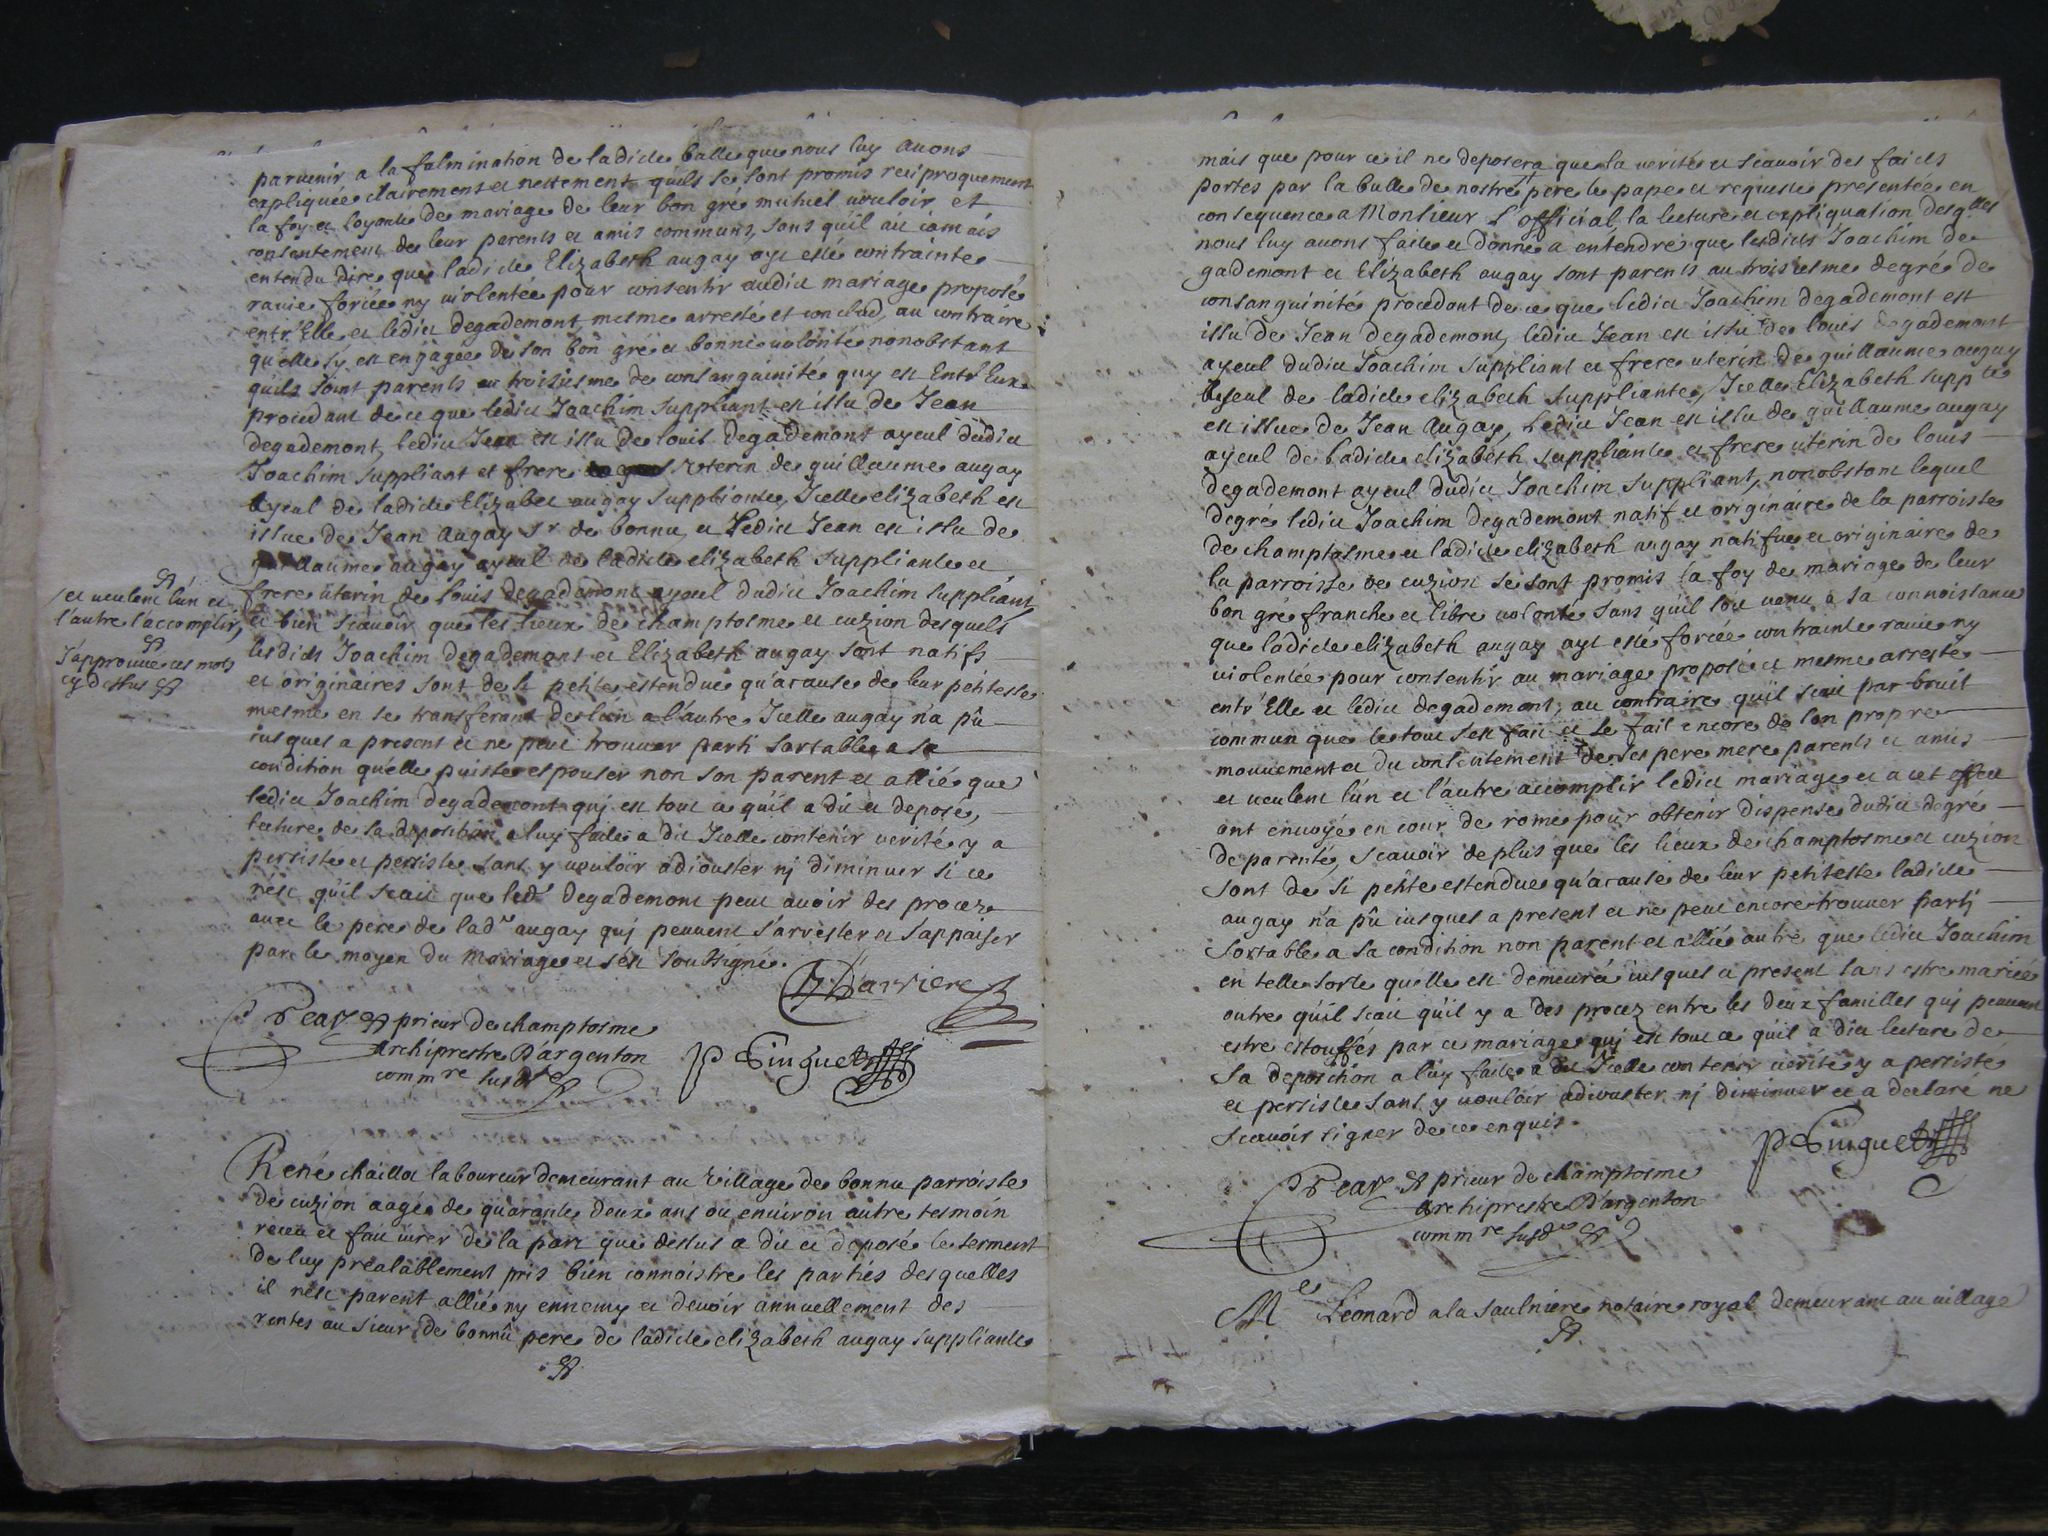 parvenir a la fulmination de ladicte bulle que nous luy avons
expliquée clairement et nettement quils se sont promis reciproquement
la foy et loyauté de mariage de leur bon gré mutuel vouloir et
consentement de leur parents et amis communs, sans qu'il ait iamais
entendu dire que ladicte Elizabeth augay ayt esté contrainte
ravie forcée ny violentée pour consentir audict mariage proposé
entr'Elle et ledict degademont, mesme arresté et conclud, au contraire
qu'elle sy est engagée de son bon gré et bonne volonté nonobstant
quils sont parents au troisiesme de consanguinité quy est Entr'Eux
procedant de ce que ledict Joachim suppliant est issu de Jean
degademont, ledict Jean est issu de louis degademont ayeul dudict
Joachim suppliant et frere uterin de guillaume augay
ayeul de ladicte Elizabet augay suppliante, Icelle elizabeth est
issue de Jean augay Sr de bonnu, et Ledict Jean est issu de
guillaume augay ayeul de ladicte elizabeth suppliante et
frere uterin de louis degademont ayeul dudict Joachim suppliant,
/et veulent l'un et
l'autre l'accomplir,
J'approuve ces mots
cy dessus
et bien scavoir que les lieux de champtosme et cuzion desquels
lesdicts Joachim degademont et Elizabeth augay sont natifs
et originaires sont de si petite estendue qu'acause de leur petitesse
mesme en se transferant de l'un a l'autre Icelle augay n'a pû
iusques a present et ne peut trouver parti sortable a sa
condition qu'elle puisse espouser non son parent et allié que
ledict Joachim degademont quj est tout ce qu'il a dit et deposé,
lecture de sa deposition a luy faite a dit Icelle contenir verité y a
persisté et persiste sans y vouloir adiouster nj diminuer si ce
n'est qu'il scait que led't degademont peut avoir des procez
avec le pere de lad'te augay quj peuvent s'arrester et s'appaiser
par le moyen du mariage et s'est soussigné.
Barriere
Pear prieur de champtosme
archiprestre D'argenton
comm're susd't
P Pinguet
René chaillot laboureur demeurant au village de bonnu parroisse
de cuzion aagé de quarante deux ans ou environ autre tesmoin
receu et fait iurer de la part que dessus a dit et deposé le serment
de luy préalablement pris bien connoistre les parties desquelles
il n'est parent allié ny ennemy et devoir annuellement des
rentes au sieur de bonnû pere de ladicte elizabeth augay suppliante
mais que pour ce il ne deposera que la verité et scavoir des faicts
portes par la bulle de nostre pere le pape et requeste presentée en
consequence a Monsieur L'official, la lecture et expliquation desq'lles
nous luy avons faite et donné a entendre que lesdicts Joachim de
gademont et Elizabeth augay sont parents au troisiesme degré de
consanguinité procedant de ce que ledict Joachim degademont est
issu de Jean degademont, ledict Jean est issu de louis degademont
ayeul dudict Joachim suppliant et frere uterin de guillaume augay
ayeul de ladicte elizabeth suppliante, Icelle Elizabeth supp'te
est issue de Jean Augay, Ledict Jean est issu de guillaume augay
ayeul de ladicte elizabeth suppliante et frere uterin de louis
degademont ayeul dudict Joachim suppliant, nonobstant lequel
degré ledict Joachim degademont natif et originaire de la parroisse
de champtosme et ladicte elizabeth augay natifve et originaire de
la parroisse de cuzion se sont promis la foy de mariage de leur
bon gre franche et libre volonté sans qu'il soit venu a sa connoissance
que ladicte elizabeth augay ayt esté forcée contrainte ravie ny
violentée pour consentir au mariage proposé et mesme arresté
entr'Elle et ledict degademont, au contraire qu'il scait par bruit
commun que le tout s'est fait et se fait encore de son propre
mouvement et du consentement de ses pere mere parents et amis
et veulent l'un et l'autre accomplir ledict mariage et a cet effect
ont envoyé en cour de rome pour obtenir dispense dudict degré
de parenté, scavoir de plus que les lieux de champtosme et cuzion
sont de si petite estendue qu'acause de leur petitesse ladicte
augay n'a pû iusques a present et ne peut encore trouver partj
sortable a sa condition non parent et allié autre que ledict Joachim
en telle sorte qu'elle est demeurée iusques a present sans estre mariée
outre qu'il scait qu'il y a des procez entre les deux familles quj peuvent
estre estouffés par ce mariage quj est tout ce quil a dict lecture de
sa deposition a luy faite a dit Icelle contenir verité y a persisté
et persiste sans y vouloir adiouster nj diminuer et a declaré ne
scavoir signer de ce enquis.
P Pinguet
Pear prieur de champtosme
archiprestre D'argenton
comm're susd't
Me Leonard alasaulniere notaire royal demeurant au village